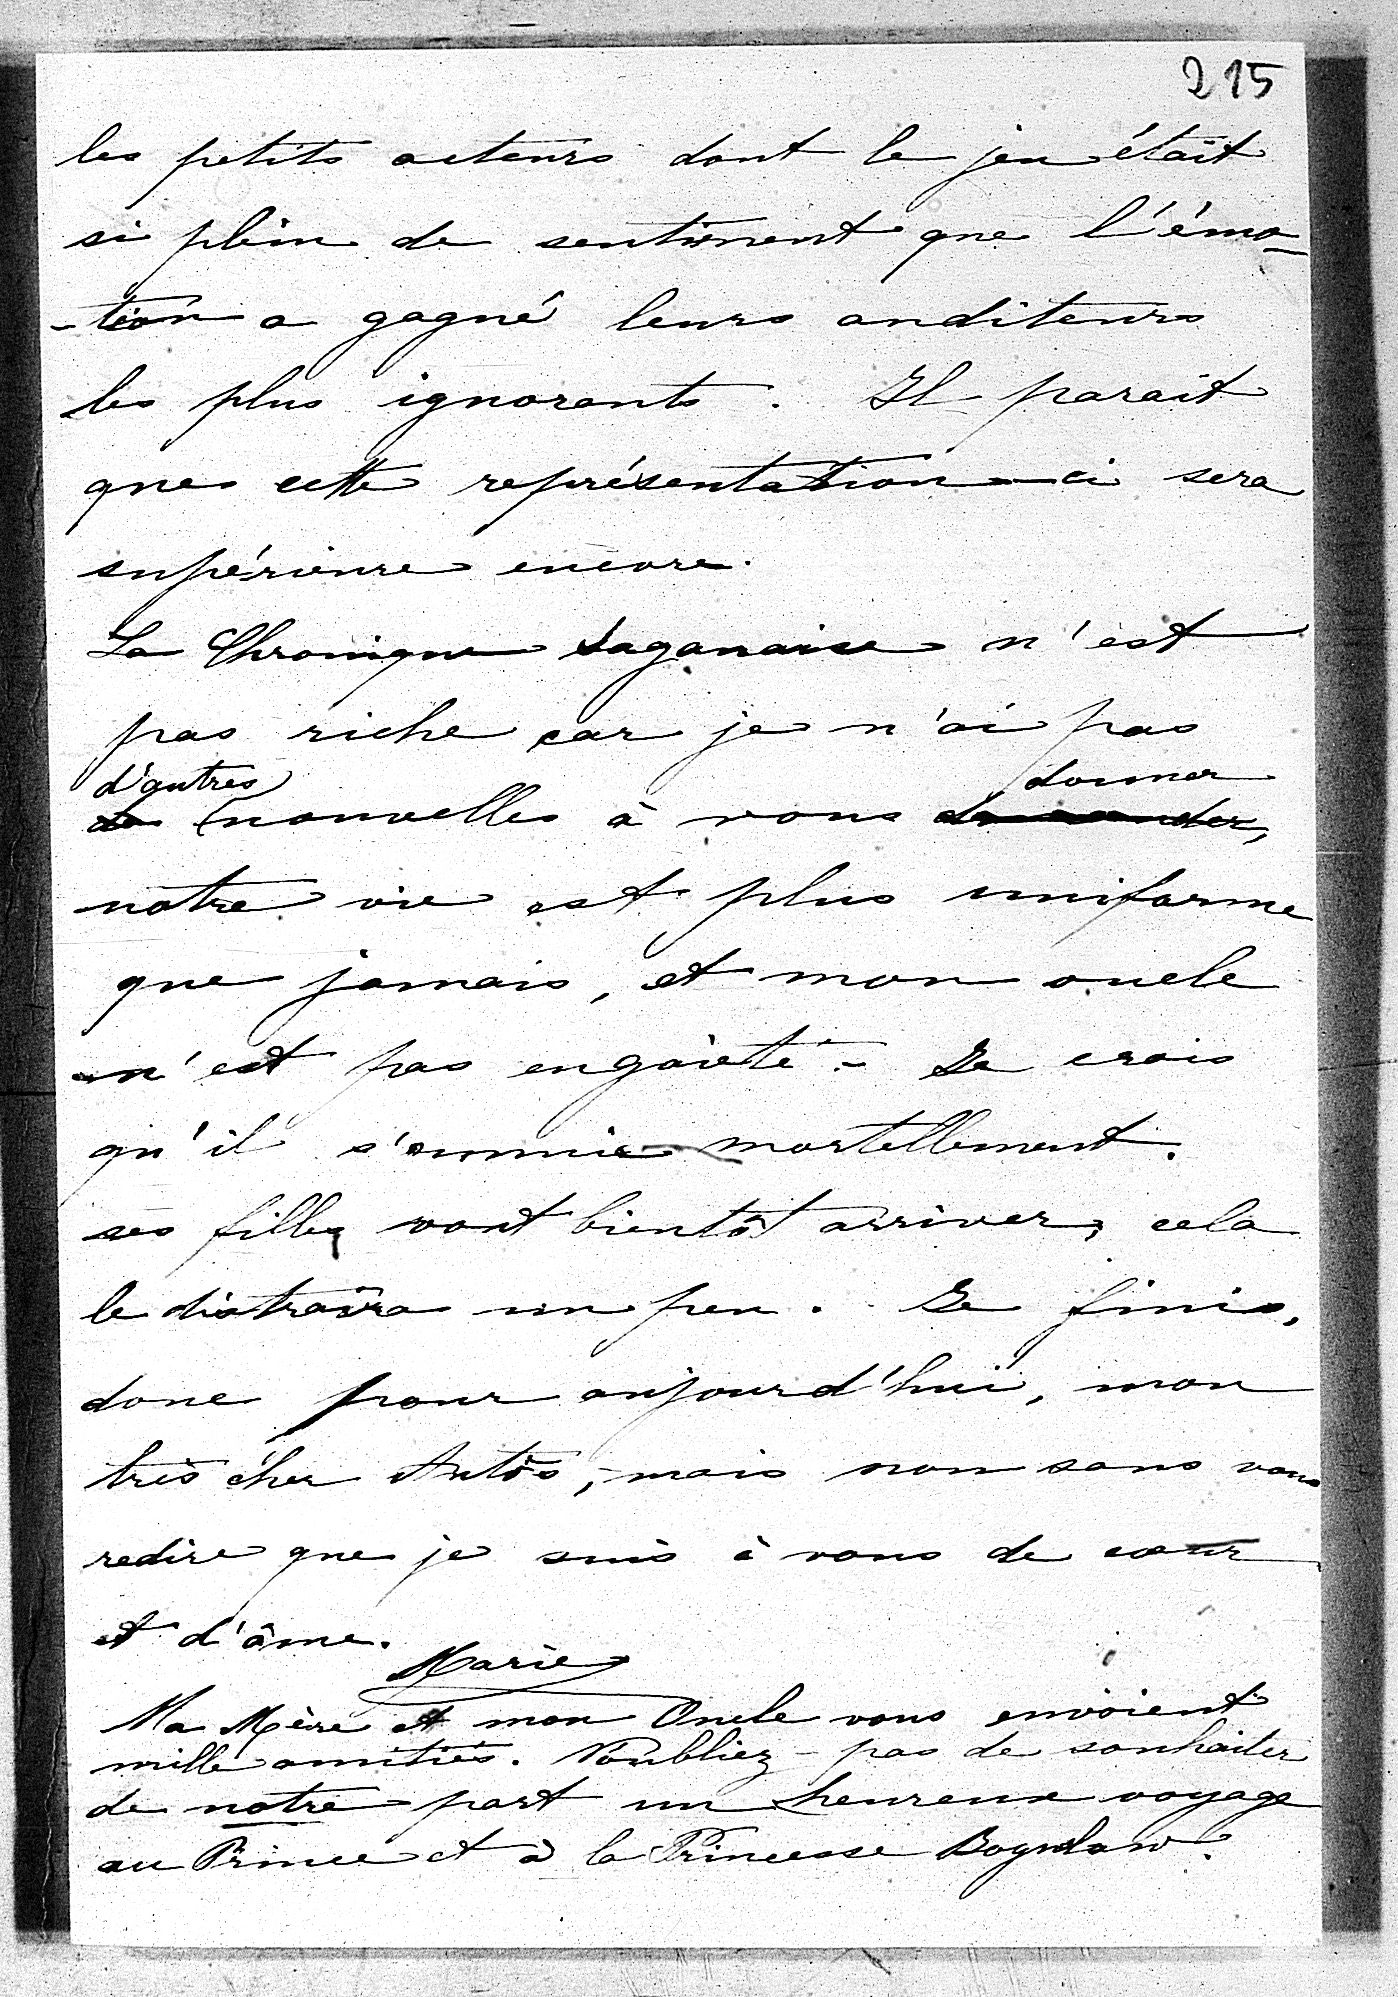 215
les petits acteurs dont le jeu était
si plein de sentiment que l'émo-
-tion a gagné leurs auditeurs
les plus ignorants. Il parait
que cette représentation-ci sera
supérieure encore.
La Chronique Saganaise n'est
pas riche car je n'ai pas
d'autres donner
de nouvelles à vous demander,
notre vie est plus uniforme
que jamais, et mon oncle
n'est pas engaieté - Je crois
qu'il s'ennuie mortellement.
ses filles vont bientôt arriver, cela
le distraira un peu. Je finis,
donc pour aujourd'hui, mon
très cher Antôs, mais non sans vous
redire que je suis à vous de cœur
et d'âme.
Marie
Ma Mère et mon Oncle vous envoient
mille amitiés. N'oubliez-pas de souhaiter
de notre part un heureux voyage
au Prince et à la Princesse Boguslaw.